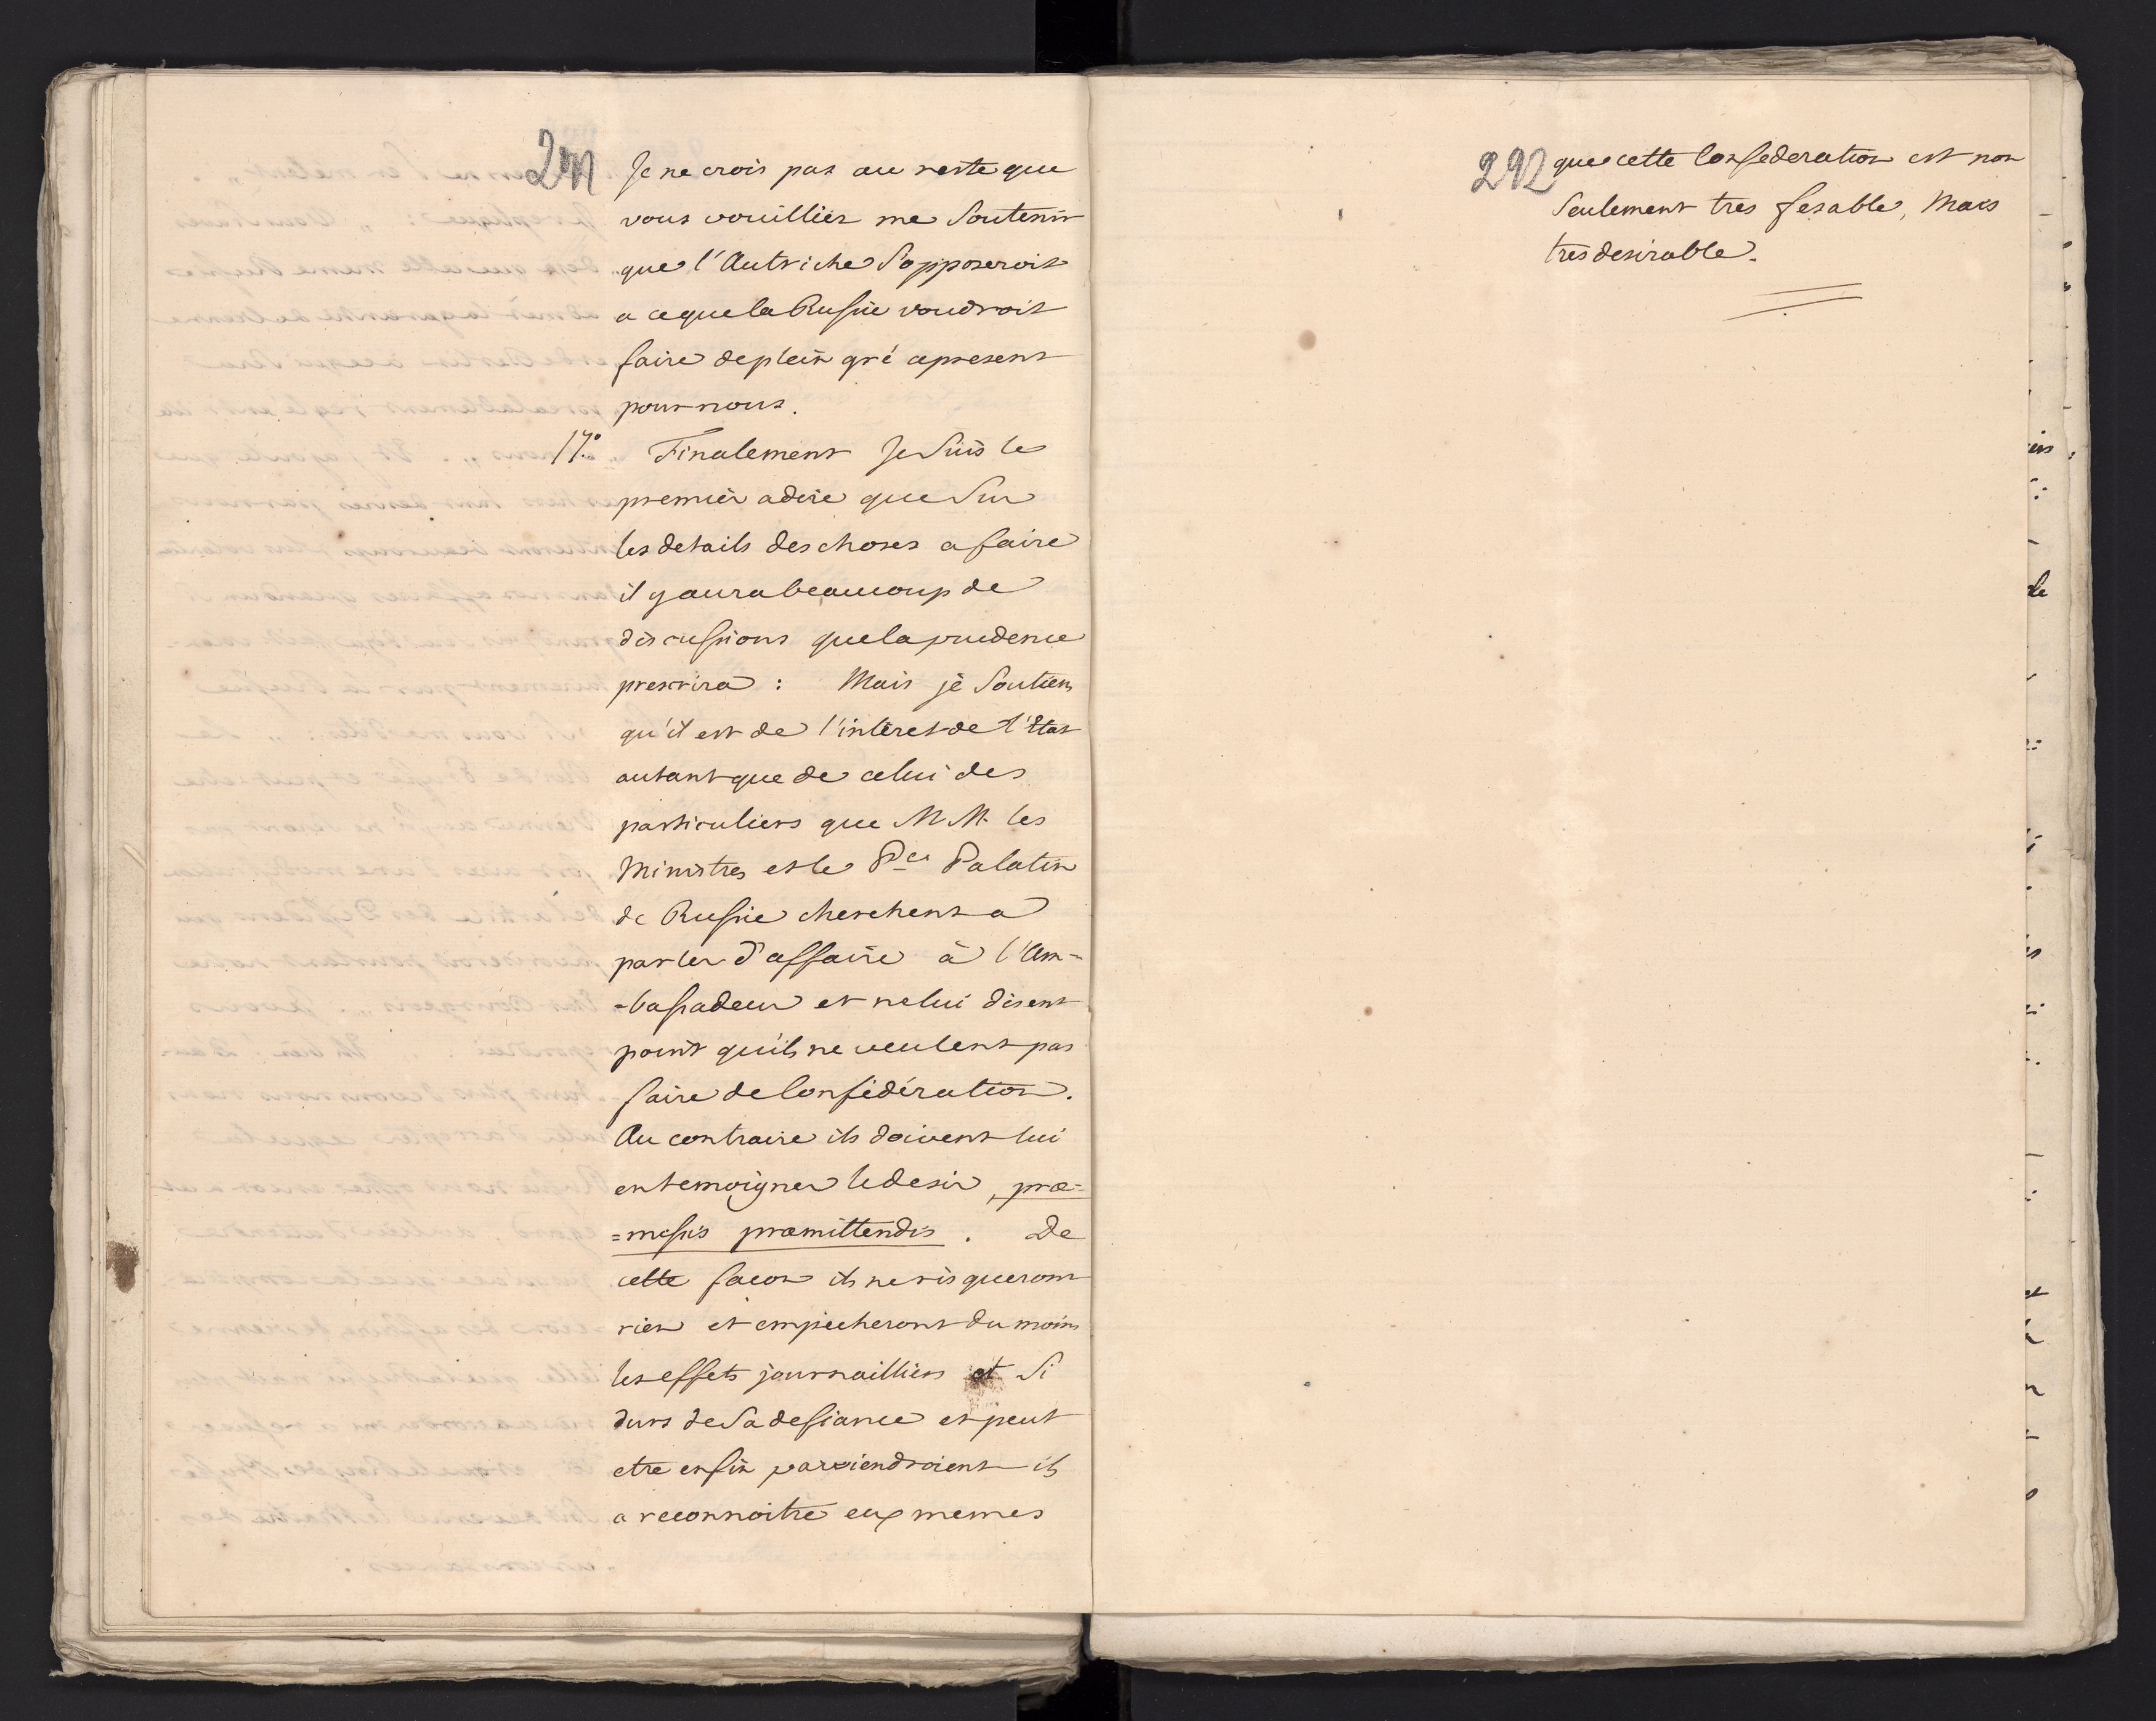 291
Je ne crois pas au reste que
vous vouilliés me Soutenir
que l'Autriche S'opposeroit
a ceque la Russie voudroit
faire de plein gré apresent
pour nous.
17° Finalement Je Suis le
premier a dire que Sur
les details des choses a faire
il y aura beaucoup de
discussions que la prudence
prescrira : Mais je Soutiens
qu'il est de l'intèret de l'Etat
autant que de celui des
particuliers que M M. les
Ministres et le Pce Palatin
de Russie cherchent a
parler d'affaire à l'Am=
=bassadeur et ne lui disent
point qu'ils ne veulent pas
faire de Confédération.
Au contraire ils doivent lui
en temoigner le desir, præ=
=messis præmittendis. De
cette facon ils ne risqueront
rien et empecheront du moins
les effets journailliers et Si
durs de Sa defiance et peut
etre enfin parviendroient ils
a reconnoitre eux memes
292
que cette Confederation est non
Seulement tres fesable, Mais
tres desirable.